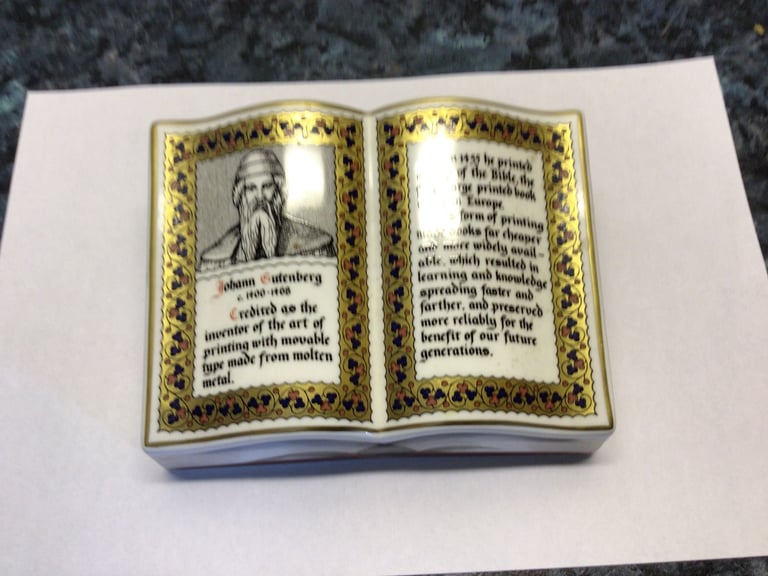 Johann Gutenberg
c. 1400-1468
Credited as the
inventor of the art of
printing with movable
type made from molten
metal.
he printed
of the Bible, the
printed book
Europe
form of printing
books far cheaper
and more widely avail-
able, which resulted in
learning and knowledge
spreading faster and
farther, and preserved
more reliably for the
benefit of our future
generations.